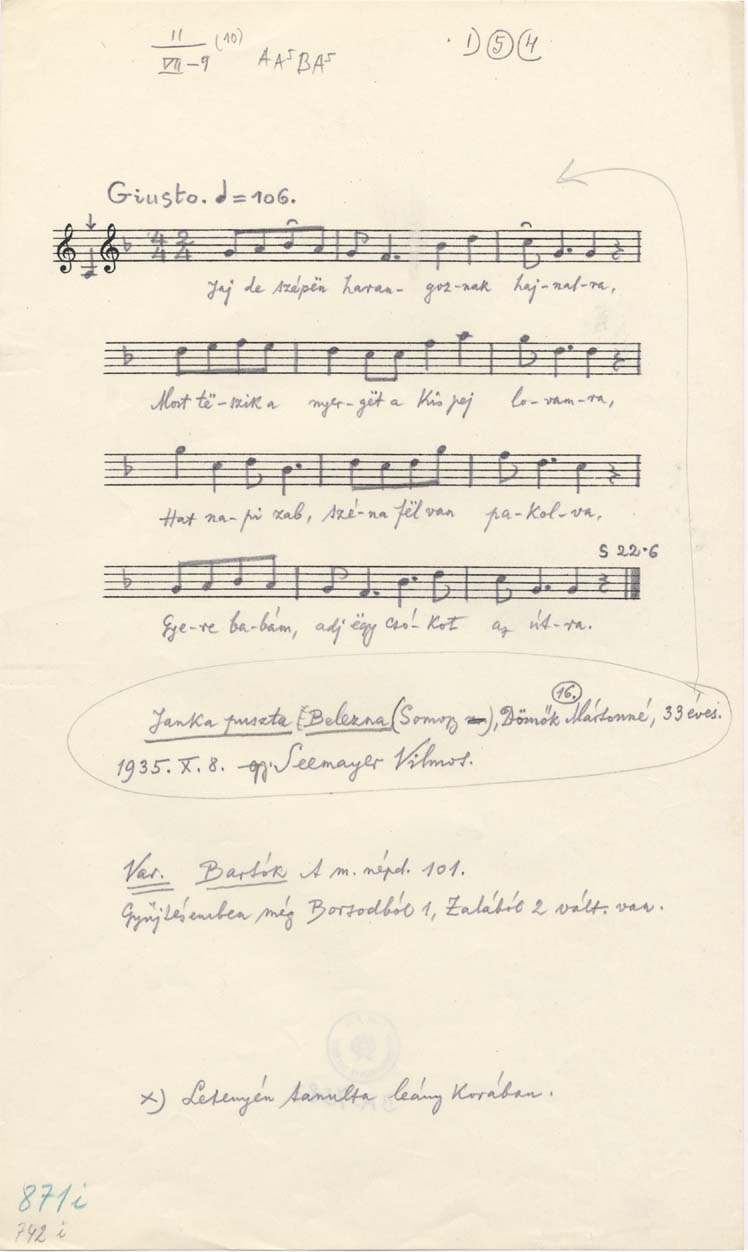 11 (10)
VII-9 A A⁵ B A⁵
1) 5 (4
Giusto. ♩=106.
4/4 2/4
Jaj de szépën haran- goz-nak haj-nal-ra,
Most të-szik a nyer-gët a Kis pej lo-vam-ra,
Hat na-pi zab, szé-na fël van pa-kol-va,
S 22.6
Gye-re ba-bám, adj ëgy csó-kot az út-ra.
16.
Janka puszta Belezna (Somogy), Dömők Mártonné, 33 éves.
1935. X. 8. gy. Seemayer Vilmos.
Var. Bartók A m. népd. 101.
Gyüjtésemben még Borsodból 1, Zalából 2 vált. van.
x) Letenyén tanulta leány Korában.
871 i
742 i